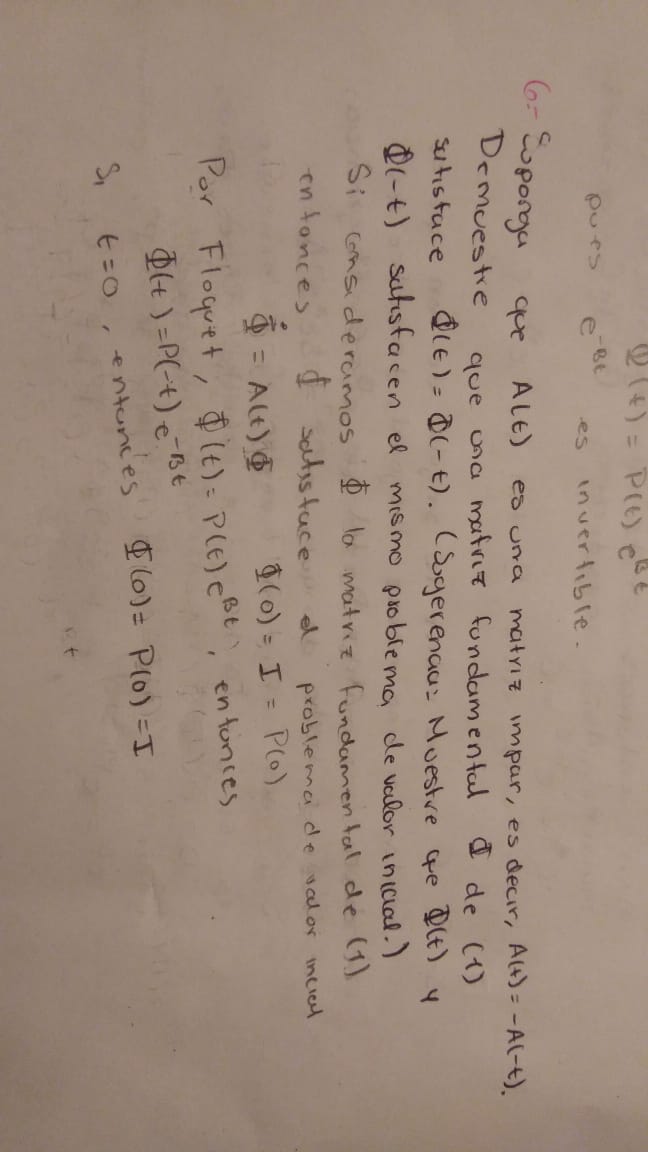 Φ(t) = P(t) e^{Bt}
pues e^{-Bt} es invertible.
6.- Suponga que A(t) es una matriz impar, es decir, A(t) = -A(-t).
Demuestre que una matriz fundamental Φ de (1)
satisface Φ(t) = Φ(-t). (Sugerencia: Muestre que Φ(t) y
Φ(-t) satisfacen el mismo problema de valor inicial.)
Si consideramos Φ la matriz fundamental de (1)
entonces Φ satisface el problema de valor inicial
Φ̇ = A(t)Φ Φ(0) = I = P(0)
Por Floquet, Φ(t) = P(t) e^{Bt}, entonces
Φ(t) = P(-t) e^{-Bt}
Si t=0, entonces Φ(0) = P(0) = I